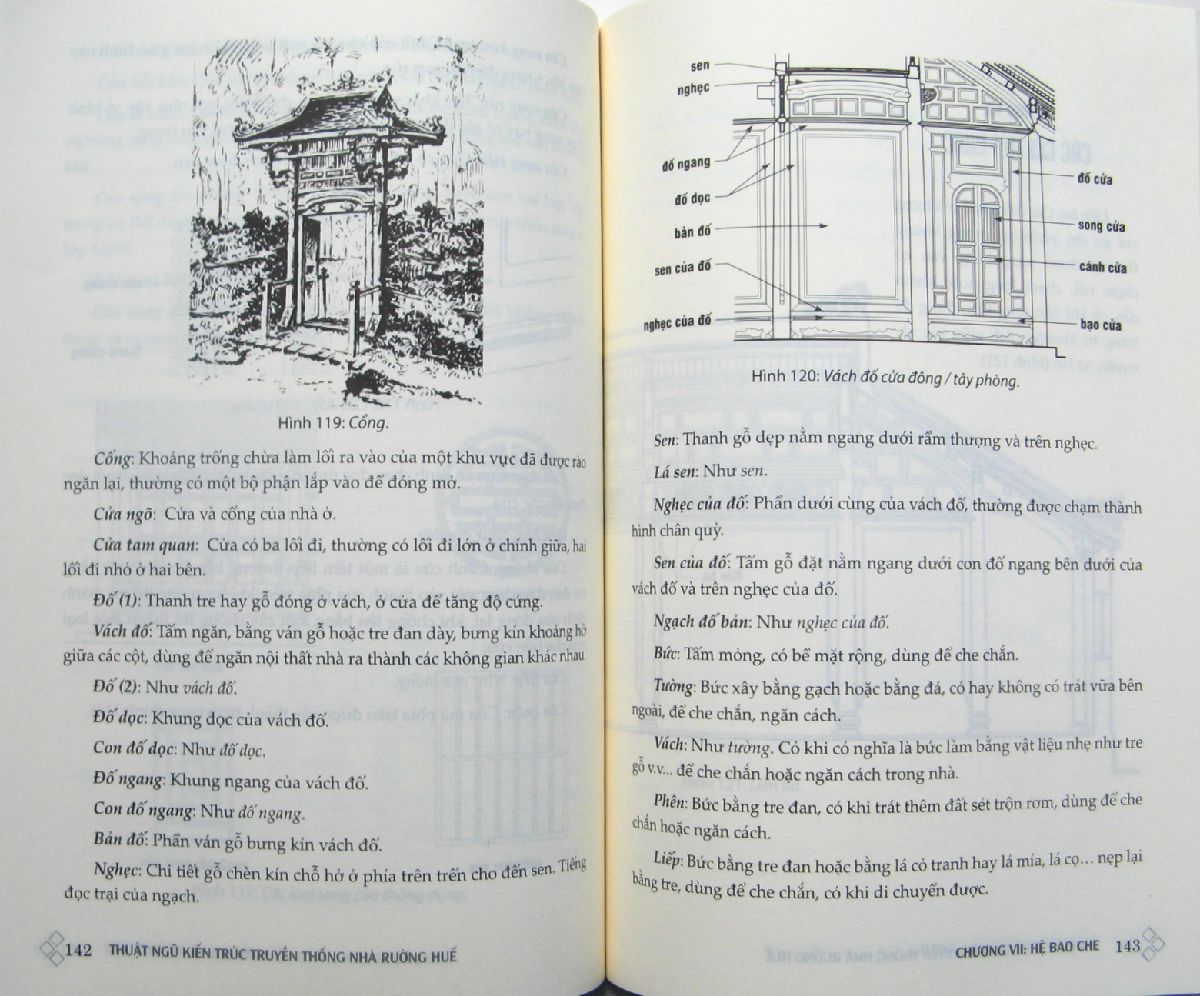 Hình 119: Cổng.
Cổng: Khoảng trống chừa làm lối ra vào của một khu vực đã được rào
ngăn lại, thường có một bộ phận lắp vào để đóng mở.
Cửa ngõ: Cửa và cổng của nhà ở.
Cửa tam quan: Cửa có ba lối đi, thường có lối đi lớn ở chính giữa, hai
lối đi nhỏ ở hai bên.
Đố (1): Thanh tre hay gỗ đóng ở vách, ở cửa để tăng độ cứng.
Vách đố: Tấm ngăn, bằng ván gỗ hoặc tre đan dày, bưng kín khoảng hở
giữa các cột, dùng để ngăn nội thất nhà ra thành các không gian khác nhau.
Đố (2): Như vách đố.
Đố dọc: Khung dọc của vách đố.
Con đố dọc: Như đố dọc.
Đố ngang: Khung ngang của vách đố.
Con đố ngang: Như đố ngang.
Bản đố: Phần ván gỗ bưng kín vách đố.
Nghẹc: Chi tiết gỗ chèn kín chỗ hở ở phía trên trến cho đến sen. Tiếng
đọc trại của ngạch.
142 THUẬT NGỮ KIẾN TRÚC TRUYỀN THỐNG NHÀ RƯỜNG HUẾ
sen
nghẹc
đố ngang
đố dọc
bản đố
sen của đố
nghẹc của đố
đố cửa
song cửa
cánh cửa
bạo cửa
Hình 120: Vách đố cửa đông / tây phòng.
Sen: Thanh gỗ dẹp nằm ngang dưới rầm thượng và trên nghẹc.
Lá sen: Như sen.
Nghẹc của đố: Phần dưới cùng của vách đố, thường được chạm thành
hình chân quỳ.
Sen của đố: Tấm gỗ đặt nằm ngang dưới con đố ngang bên dưới của
vách đố và trên nghẹc của đố.
Ngạch đố bản: Như nghẹc của đố.
Bức: Tấm mỏng, có bề mặt rộng, dùng để che chắn.
Tường: Bức xây bằng gạch hoặc bằng đá, có hay không có trát vữa bên
ngoài, để che chắn, ngăn cách.
Vách: Như tường. Có khi có nghĩa là bức làm bằng vật liệu nhẹ như tre
gỗ v.v... để che chắn hoặc ngăn cách trong nhà.
Phên: Bức bằng tre đan, có khi trát thêm đất sét trộn rơm, dùng để che
chắn hoặc ngăn cách.
Liếp: Bức bằng tre đan hoặc bằng lá cỏ tranh hay lá mía, lá cọ... nẹp lại
bằng tre, dùng để che chắn, có khi di chuyển được.
CHƯƠNG VII: HỆ BAO CHE 143